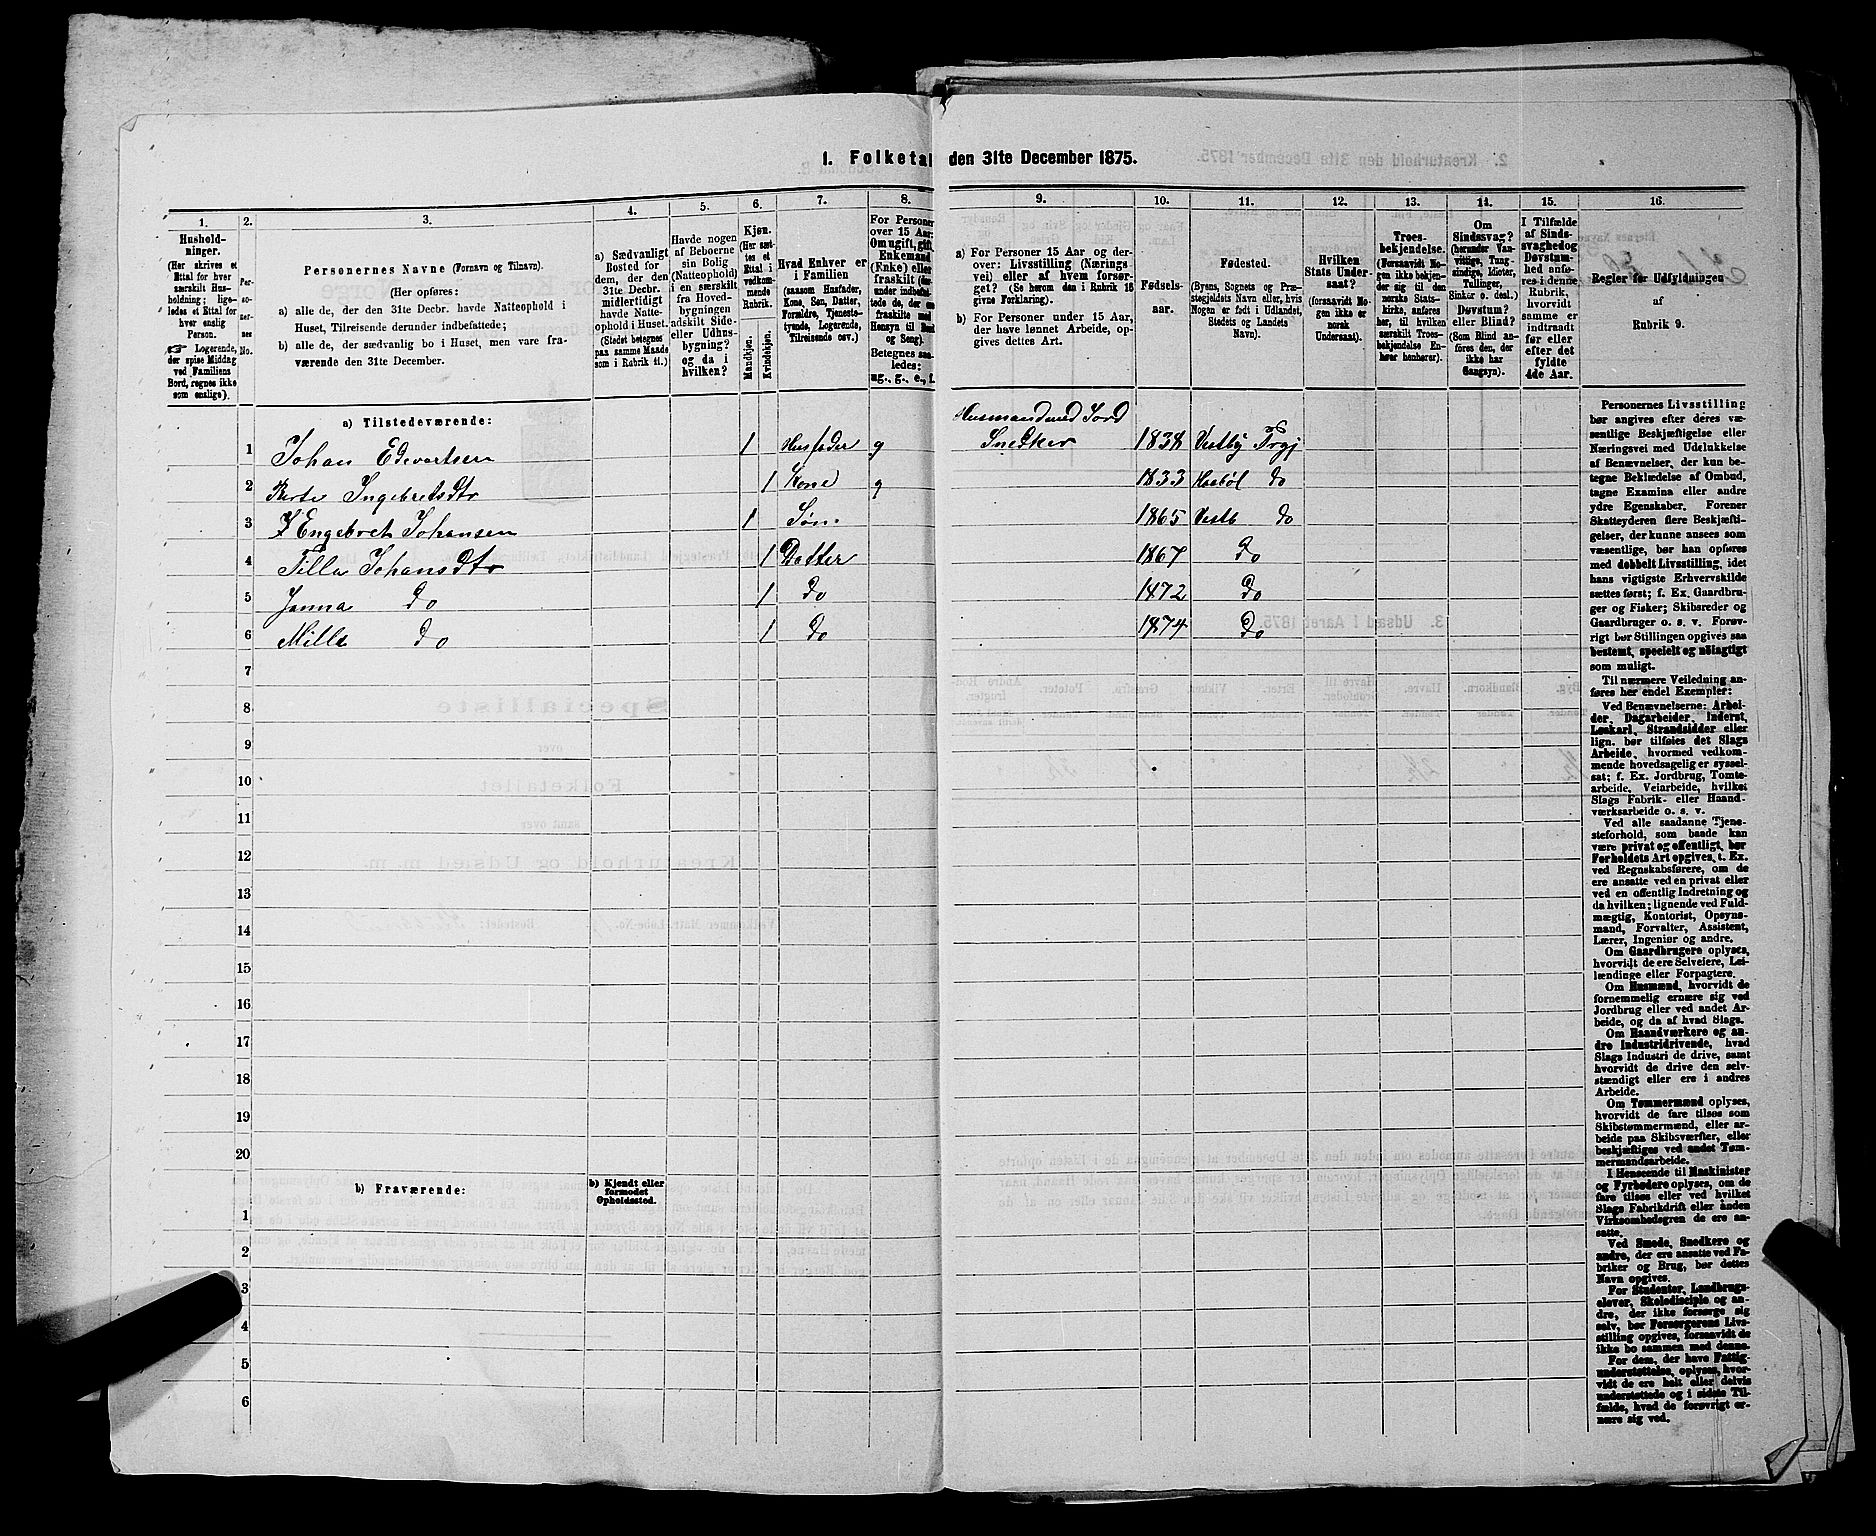 1. Folketal den 31te December 1875.
1. 2. 3. 4. 5. 6. 7. 8. 9. 10. 11. 12. 13. 14. 15. 16.
Hushold-
ninger.
(Her skrives et
Ettal for hver
særskilt Hus-
holdning; lige-
ledes et Ettal for
hver enslig
Person.
☞ Logerende,
der spise Middag
ved Familiens
Bord, regnes ikke
som enslige).
Per-
so-
ner-
nes
No.
Personernes Navne (Fornavn og Tilnavn).
(Her opføres:
a) alle de, der den 31te Decbr. havde Natteophold i
Huset, Tilreisende derunder indbefattede;
b) alle de, der sædvanlig bo i Huset, men vare fra-
værende den 31te December.
a) Sædvanligt
Bosted for
dem, der den
31te Decbr.
midlertidigt
havde Natte-
ophold i Huset.
(Stedet betegnes
paa samme Maade
som i Rubrik 11.)
Havde nogen
af Beboerne
sin Bolig
(Natteophold)
i en særskilt
fra Hoved-
bygningen
adskilt Side-
eller Udhus-
bygning?
og da i
hvilken?
Kjøn.
(Her sæt-
tes et
Ettal i
vedkom-
mende
Rubrik.
Mandkjøn.
Kvindekjøn.
Hvad Enhver er
i Familien
(saasom Husfader,
Kone, Søn, Datter,
Forældre, Tjeneste-
tyende, Logerende,
Tilreisende osv.)
For Personer
over 15 Aar:
Om ugift, gift,
Enkemand
(Enke) eller
fraskilt
Betegnes saa-
ledes:
ug., g., e., f.
a) For Personer 15 Aar og der-
over: Livsstilling (Nærings-
vei) eller af hvem forsør-
get? (Se herom den i Rubrik 16
givne Forklaring).
b) For Personer under 15 Aar,
der have lønnet Arbeide, op-
gives dettes Art.
Fødsels-
aar.
Fødested.
(Byens, Sognets og Præ-
stegjeldets Navn eller, hvis
Nogen er født i Udlandet,
Stedets og Landets
Navn).
Hvilken
Stats Under-
saat?
(forsaavidt No-
gen ikke er
norsk
Undersaat).
Troes-
bekjendelse.
(Forsaavidt No-
gen ikke bekjen-
der sig til den
norske Stats-
kirke, anføres
her, til hvilken
særskilt Troes-
bekjendelse En-
hver henhører).
Om
Sindssvag?
(herunder Van-
vittige, Tung-
sindige, Idioter,
Tullinger,
Sinker o. desl.)
Døvstum?
eller Blind?
(Som Blind an-
føres den, der
ikke har
Gangsyn).
I Tilfælde
af Sinds-
svaghed og
Døvstum-
hed anfø-
res i denne
Rubrik,
hvorvidt
samme er
indtraadt
før eller
efter det
fyldte
4de Aar.
Regler for Udfyldningen
af
Rubrik 9.
a) Tilstedeværende:
Husmand med Jord
1 Johan Edvartsen 1 Husfader g Snedker 1838 Vestby Prgj
2 Berte Ingebretsdtr 1 Kone g 1833 Haabøl do
3 Engebret Johansen 1 Søn. 1865 Vestb do
4 Tilla Johansdtr 1 Datter 1867 do
5 Janna do 1 do 1872 do
6 Milla do 1 do 1874 do
7
8
9
10
11
12
13
14
15
16
17
18
19
20
b) Fraværende:
b) Kjendt eller
formodet
Opholdssted.
1
2
3
4
5
6
Personernes Livsstilling
bør angives efter deres væ-
sentlige Beskjæftigelse eller
Næringsvei med Udelukkelse
af Benævnelser, der kun be-
tegne Beklædelse af Ombud,
tagne Examina eller andre
ydre Egenskaber. Forener
Skatteyderen flere Beskjæfti-
gelser, der kunne ansees som
væsentlige, bør han opføres
med dobbelt Livsstilling, idet
hans vigtigste Erhvervskilde
sættes først; f. Ex. Gaardbru-
ger og Fisker; Skibsreder og
Gaardbruger o. s. v. Forøv-
rigt bør Stillingen opgives saa
bestemt, specielt og nøiagtigt
som muligt.
Til nærmere Veiledning an-
føres her endel Exempler:
Ved Benævnelserne: Arbei-
der, Dagarbeider, Inderst,
Løskarl, Strandsidder eller
lign. bør tilføies det Slags
Arbeide, hvormed vedkom-
mende hovedsagelig er syssel-
sat; f. Ex. Jordbrug, Tomte-
arbeide, Veiarbeide, hvilket
Slags Fabrik- eller Haand-
værksarbeide o. s. v.
Ved alle saadanne Tjene-
steforhold, som baade kan
være privat og offentligt, bør
Forholdets Art opgives, t. Ex.
ved Regnskabsførere, om de
ere ansatte ved en privat eller
ved en offentlig Indretning og
da hvilken; lignende ved Fuld-
mægtig, Kontorist, Opsyns-
mand, Forvalter, Assistent,
Lærer, Ingeniør og andre.
Om Gaardbrugere oplyses,
hvorvidt de ere Selveiere, Lei-
lændinge eller Forpagtere.
Om Husmænd, hvorvidt de
fornemmelig ernære sig ved
Jordbrug eller ved andet Ar-
beide, og da af hvad Slags.
Om Haandværkere og an-
dre Industridrivende, hvad
Slags Industri de drive, samt
hvorvidt de drive den selv-
stændigt eller ere i andres
Arbeide.
Om Tømmermænd oplyses,
hvorvidt de fare tilsøs som
Skibstømmermænd, eller ar-
beide paa Skibsværfter, eller
beskjæftiges ved andet Tøm-
mermandsarbeide.
I Henseende til Maskinister
og Fyrbødere oplyses, om de
fare tilsøs eller ved hvilket
Slags Fabrikdrift eller anden
Virksomhedsgren de ere an-
satte.
Ved Smede, Snedkere og
andre, der ere ansatte ved Fa-
briker og Brug, bør dettes
Navn opgives.
For Studenter, Landbrugs-
elever, Skoledisciple og an-
dre, der ikke forsørge sig
selv, bør Forsørgerens Livs-
stilling opgives, forsaavidt de
ikke bo sammen med denne.
For dem, der have Fattig-
understøttelse, oplyses, hvor-
vidt de ere helt eller delvis
understøttede og i sidste Til-
fælde, hvad de forøvrigt er-
nære sig ved.